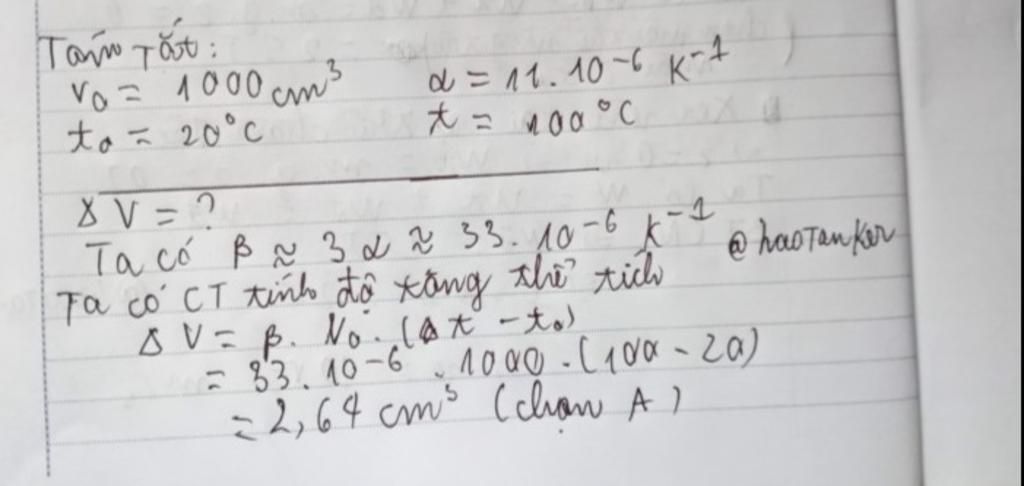 Tóm Tắt:
V₀ = 1000 cm³ α = 11. 10⁻⁶ K⁻¹
t₀ = 20°C t = 100°C
Δ V = ?
Ta có β ≈ 3 α ≈ 33. 10⁻⁶ K⁻¹ @haoTanker
Ta có CT tính độ tăng thể tích
Δ V = β. V₀. (Δt - t₀)
= 33. 10⁻⁶ . 1000. (100 - 20)
= 2,64 cm³ (chọn A)